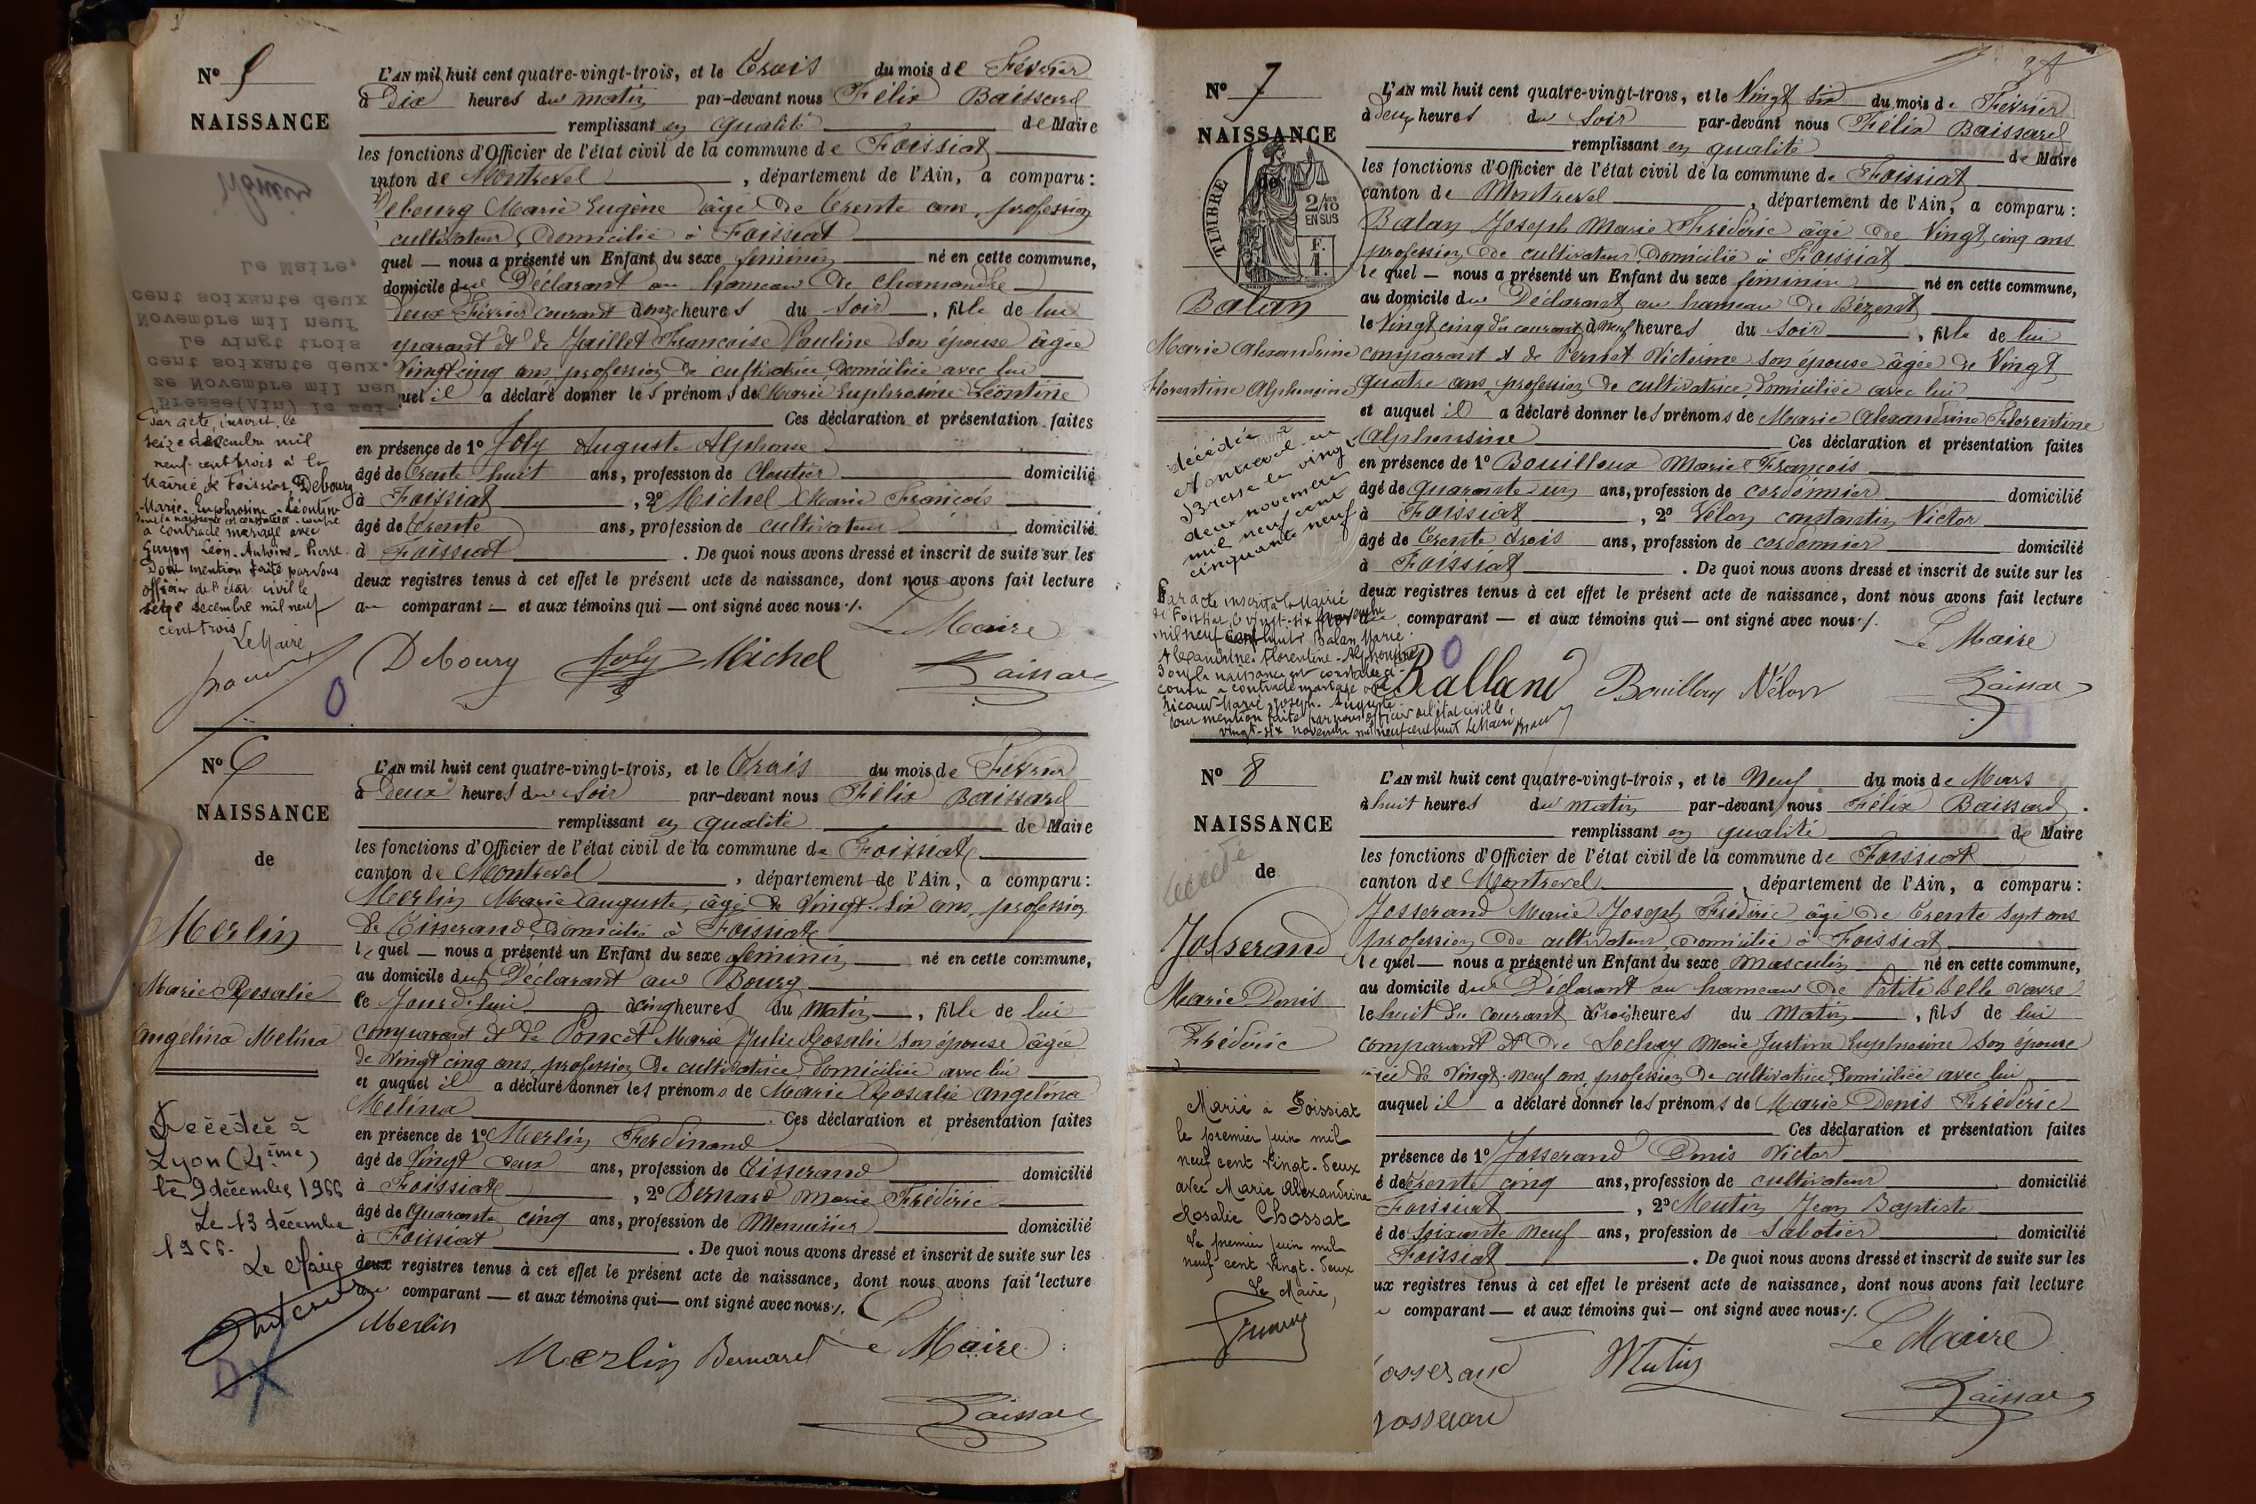 Nº 5
NAISSANCE
L'AN mil huit cent quatre-vingt-trois, et le Trois du mois de Février
à Dix heures du matin par-devant nous Félix Baissard
remplissant en qualité de Maire
les fonctions d'Officier de l'état civil de la commune de Foissiat
anton de Montrevel, département de l'Ain, a comparu:
Debourg Marie Eugène âgé de Trente ans, profession
cultivateur, Domicilié à Foissiat
quel — nous a présenté un Enfant du sexe féminin né en cette commune,
domicile du Déclarant au hameau de Chamandre
deux Février courant à onze heures du soir, fille de lui
parant et de Jaillet Francoise Pauline son épouse âgée
Vingt cinq ans, profession de cultivatrice Domiciliée avec lui
quel il a déclaré donner les prénoms de Marie Euphrosine Léontine
Ces déclaration et présentation faites
en présence de 1º Joly Auguste Alphonse
âgé de trente huit ans, profession de Cloutier domicilié
à Foissiat, 2º Michel Marie François
âgé de trente ans, profession de cultivateur domicilié
à Foissiat. De quoi nous avons dressé et inscrit de suite sur les
deux registres tenus à cet effet le présent acte de naissance, dont nous avons fait lecture
au comparant — et aux témoins qui — ont signé avec nous.
Le Maire
Debourg Joly Michel Baissard
Le Maire,
cent soixante deux
Novembre mil neuf
Le vingt trois
cent soixante deux.
ze Novembre mil neu
Bresse(Ain) le
Par acte, inscrit, le
seize décembre mil
neuf cent trois à la
Mairie de Foissiat, Debourg
Marie-Euphrosine-Léontine
dont la naissance est constatée ci-contre
a contracté mariage avec
Guyon Léon-Antoine-Pierre.
Dont mention faite par nous
officier de l'état civil le
seize décembre mil neuf
cent trois
Le Maire
Nº 6
NAISSANCE
de
Merlin
Marie Rosalie
Angelina Melina
L'AN mil huit cent quatre-vingt-trois, et le Trois du mois de Février
à Deux heures du soir par-devant nous Félix Baissard
remplissant en qualité de Maire
les fonctions d'Officier de l'état civil de la commune de Foissiat
canton de Montrevel, département de l'Ain, a comparu:
Merlin Marie Auguste, âgé de Vingt-six ans, profession
de Tisserand, Domicilié à Foissiat
le quel — nous a présenté un Enfant du sexe féminin né en cette commune,
au domicile du Déclarant au Bourg
le Jourd'hui à cinq heures du matin, fille de lui
comparant et de Poncet Marie Julie Rosalie son épouse âgée
de Vingt cinq ans, profession de cultivatrice Domiciliée avec lui
et auquel il a déclaré donner les prénoms de Marie Rosalie Angelina
Melina. Ces déclaration et présentation faites
en présence de 1º Merlin Ferdinand
âgé de Vingt deux ans, profession de Tisserand domicilié
à Foissiat, 2º Bernard Marie Frédéric
âgé de Quarante cinq ans, profession de Menuisier domicilié
à Foissiat. De quoi nous avons dressé et inscrit de suite sur les
deux registres tenus à cet effet le présent acte de naissance, dont nous avons fait lecture
au comparant — et aux témoins qui — ont signé avec nous.
Merlin
Merlin Bernard Le Maire
Baissard
Décédée à
Lyon (4ème)
le 9 décembre 1966
Le 13 décembre
1966.
Le Maire
Nº 7
NAISSANCE
de
TIMBRE
2/10
EN SUS
Balan
Marie Alexandrine
Florentine Alphonsine
L'AN mil huit cent quatre-vingt-trois, et le Vingt six du mois de Février
à deux heures du soir par-devant nous Félix Baissard
remplissant en qualité de Maire
les fonctions d'Officier de l'état civil de la commune de Foissiat
canton de Montrevel, département de l'Ain, a comparu:
Balan Joseph Marie Frédéric âgé de Vingt cinq ans
profession de cultivateur, Domicilié à Foissiat
le quel — nous a présenté un Enfant du sexe féminin né en cette commune,
au domicile du Déclarant au hameau de Bézemt
le Vingt cinq du courant à neuf heures du soir, fille de lui
comparant et de Pernet Victorine son épouse âgée de Vingt
Quatre ans, profession de cultivatrice, Domiciliée avec lui
et auquel il a déclaré donner les prénoms de Marie Alexandrine Florentine
Alphonsine Ces déclaration et présentation faites
en présence de 1º Bouilloux Marie François
âgé de quarante un ans, profession de cordonnier domicilié
à Foissiat, 2º Vélon constantin Victor
âgé de trente trois ans, profession de cordonnier domicilié
à Foissiat. De quoi nous avons dressé et inscrit de suite sur les
deux registres tenus à cet effet le présent acte de naissance, dont nous avons fait lecture
comparant — et aux témoins qui — ont signé avec nous.
Le Maire
Balland Bouilloux Vélon Baissard
décédée
Montrevel-en
Bresse le vingt
deux novembre
mil neuf cent
cinquante neuf
Par acte inscrit à la Mairie
de Foissiat, le vingt-six novembre
mil neuf cent huit Balan Marie
Alexandrine-Florentine-Alphonsine
dont la naissance est constatée ci-
contre a contracté mariage avec
Ricau Marie-Joseph-Auguste.
Dont mention faite par nous officier de l'état civil le
vingt-six novembre mil neuf cent huit Le Maire
Nº 8
NAISSANCE
de
Josserand
Marie Denis
Frédéric
L'AN mil huit cent quatre-vingt-trois, et le Neuf du mois de Mars
à huit heures du matin par-devant nous Félix Baissard
remplissant en qualité de Maire
les fonctions d'Officier de l'état civil de la commune de Foissiat
canton de Montrevel, département de l'Ain, a comparu:
Josserand Marie Joseph Frédéric âgé de trente sept ans
profession de cultivateur, Domicilié à Foissiat
le quel — nous a présenté un Enfant du sexe masculin né en cette commune,
au domicile du Déclarant au hameau de Petite Belle Vavre
le huit du courant à trois heures du matin, fils de lui
comparant et de Lochay Marie Justine Euphrosine son épouse
de Vingt-neuf ans, profession de cultivatrice, Domiciliée avec lui
auquel il a déclaré donner les prénoms de Marie Denis Frédéric
Ces déclaration et présentation faites
présence de 1º Josserand Denis Victor
é de trente cinq ans, profession de cultivateur domicilié
Foissiat, 2º Mutin Jean Baptiste
é de soixante neuf ans, profession de Sabotier domicilié
Foissiat. De quoi nous avons dressé et inscrit de suite sur les
ux registres tenus à cet effet le présent acte de naissance, dont nous avons fait lecture
comparant — et aux témoins qui — ont signé avec nous.
Le Maire
osserand Mutin
Baissard
Josserand
Marié à Foissiat
le premier juin mil
neuf cent vingt-deux
avec Marie Alexandrine
Rosalie Chossat
Le premier juin mil
neuf cent vingt-deux
Le Maire,